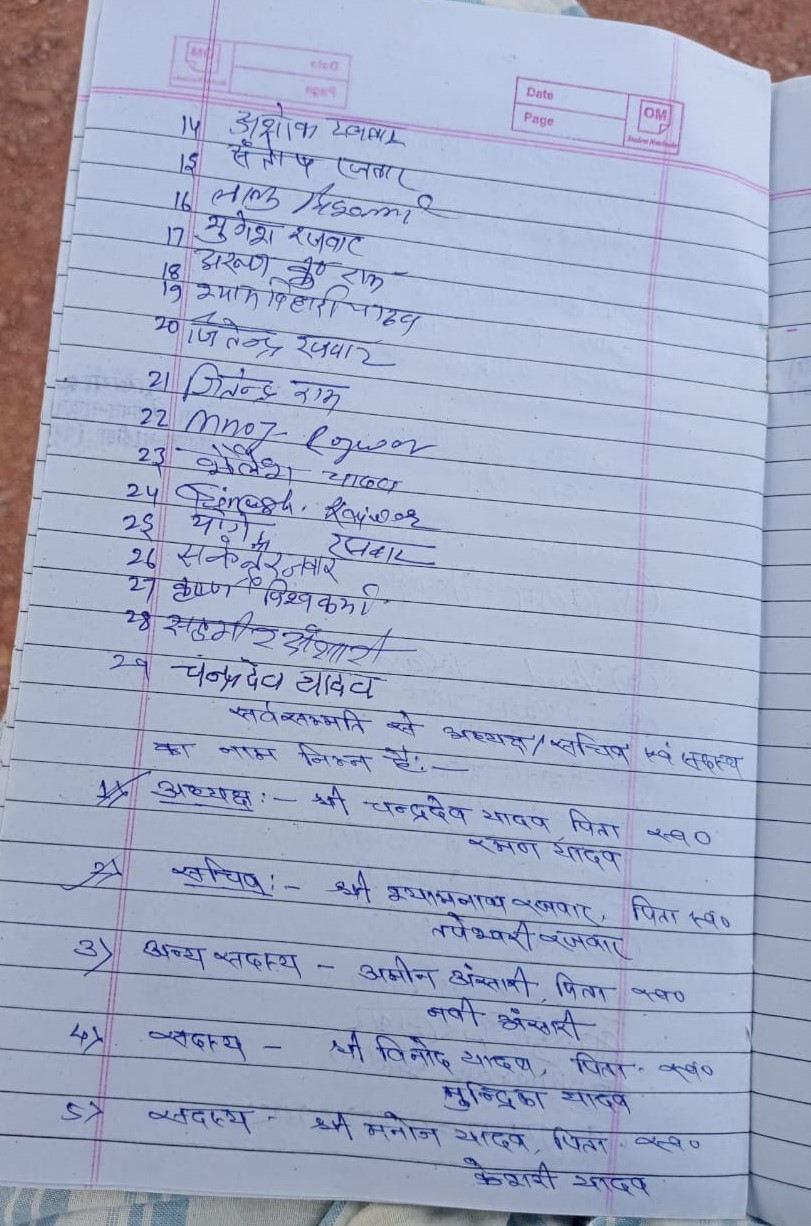 Date
Page
OM
14 अशोक रजवार
15 संतोष रजवार
16
17 मुगेश रजवार
18 अरुण कु० राम
19 श्याम बिहारी यादव
20 जितेन्द्र रजवार
21 जितेन्द्र राम
22 Mnoj Rajwar
23 यादव
24 Rajwar
25 रजवार
26 रजवार
27 कृष्णा विश्वकर्मा
28 अंसारी
29 चन्द्रदेव यादव
सर्वसम्मति से अध्यक्ष/सचिव एवं सदस्य
का नाम निम्न है:-
1) अध्यक्ष:- श्री चन्द्रदेव यादव, पिता स्व०
रमन यादव
2) सचिव:- श्री श्यामनाथ रजवार, पिता स्व०
तपेश्वरी रजवार
3) अन्य सदस्य - अमीन अंसारी, पिता स्व०
नवी अंसारी
4) सदस्य - श्री विनोद यादव, पिता स्व०
मुन्द्रिका यादव
5) सदस्य - श्री मनोज यादव, पिता स्व०
केशरी यादव